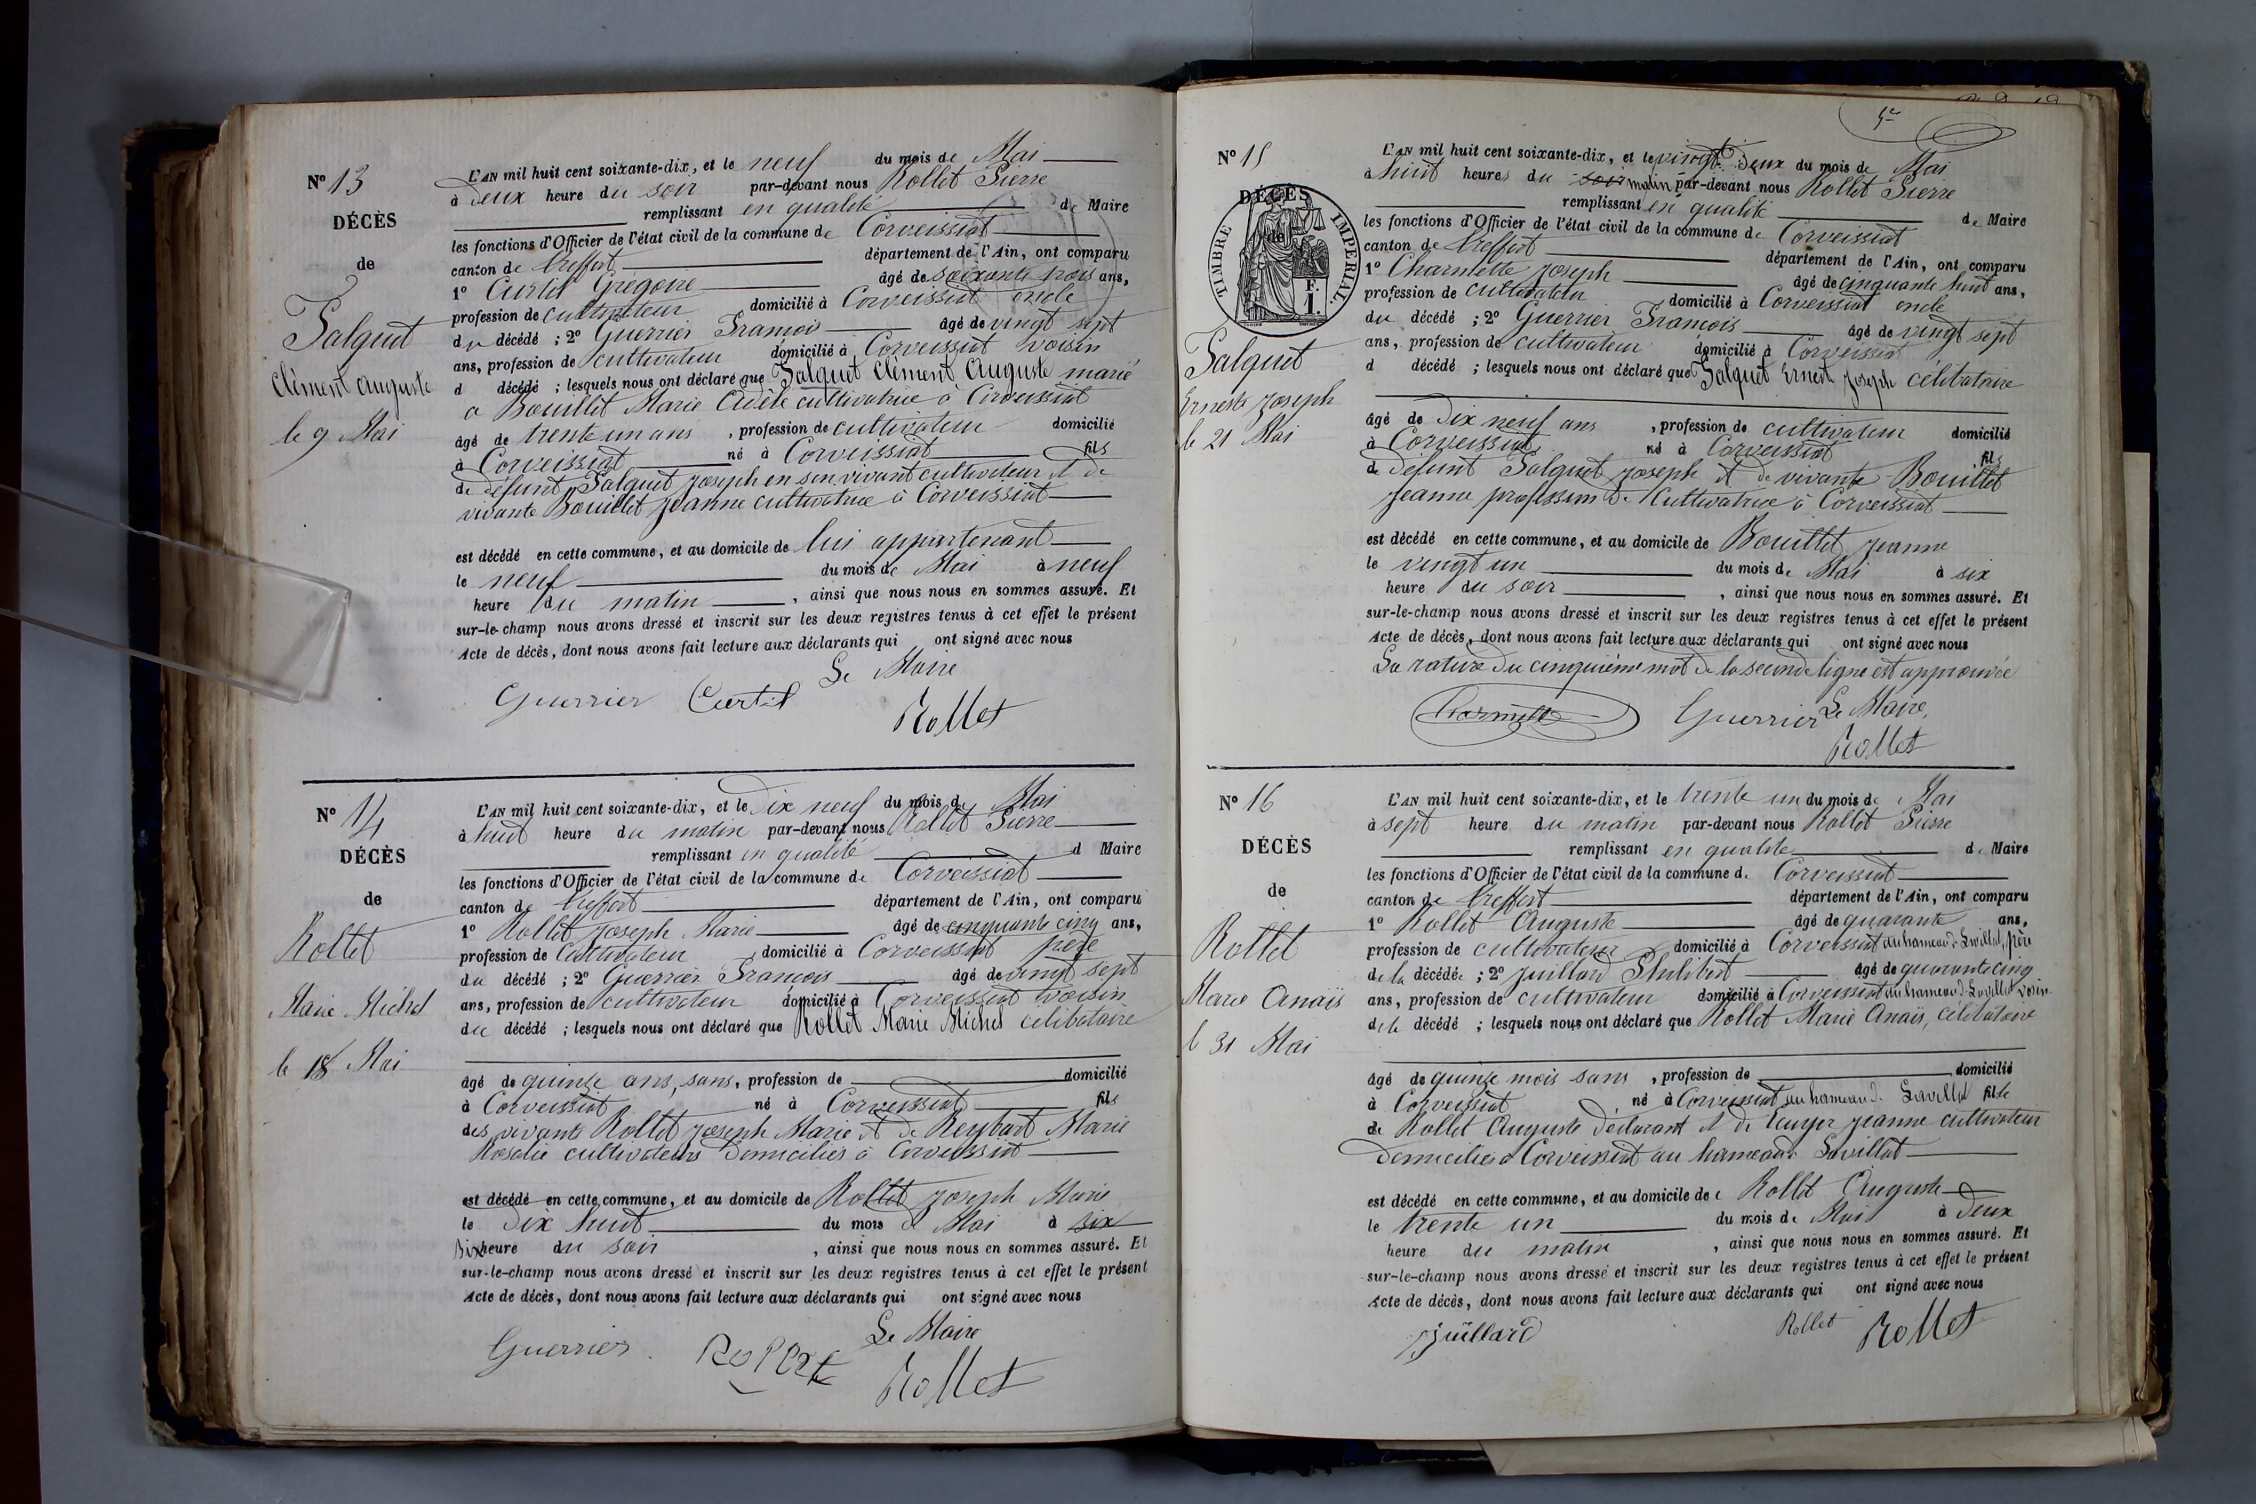 N° 13
DÉCÈS
de
Salquet
Clément Auguste
le 9 Mai
L'AN mil huit cent soixante-dix, et le neuf du mois de Mai
à deux heure du soir par-devant nous Rollet Pierre
remplissant en qualité de Maire
les fonctions d'Officier de l'état civil de la commune de Corveissiat
canton de Treffort département de l'Ain, ont comparu
1° Curtil Grégoire âgé de soixante trois ans,
profession de cultivateur domicilié à Corveissiat oncle
du décédé ; 2° Guerrier Francois âgé de vingt sept
ans, profession de cultivateur domicilié à Corveissiat voisin
d décédé ; lesquels nous ont déclaré que Salquet Clément Auguste marié
a Bouillet Marie Adèle cultivatrice à Corveissiat
âgé de trente un ans , profession de cultivateur domicilié
à Corveissiat né à Corveissiat fils
de défunt Salquet Joseph en son vivant cultivateur et de
vivante Bouillet Jeanne cultivatrice à Corveissiat
est décédé en cette commune, et au domicile de lui appartenant
le neuf du mois de Mai à neuf
heure du matin , ainsi que nous nous en sommes assuré. Et
sur-le-champ nous avons dressé et inscrit sur les deux registres tenus à cet effet le présent
Acte de décès, dont nous avons fait lecture aux déclarants qui ont signé avec nous
Le Maire
Guerrier Curtil
Rollet
N° 14
DÉCÈS
de
Rollet
Marie Michel
le 18 Mai
L'AN mil huit cent soixante-dix, et le dix neuf du mois de Mai
à huit heure du matin par-devant nous Rollet Pierre
remplissant en qualité d Maire
les fonctions d'Officier de l'état civil de la commune de Corveissiat
canton de Treffort département de l'Ain, ont comparu
1° Rollet Joseph Marie âgé de cinquante cinq ans,
profession de cultivateur , domicilié à Corveissiat père
du décédé ; 2° Guerrier Francois âgé de vingt sept
ans, profession de cultivateur domicilié à Corveissiat voisin
du décédé ; lesquels nous ont déclaré que Rollet Marie Michel célibataire
âgé de quinze ans, sans , profession de domicilié
à Corveissiat né à Corveissiat fils
des vivants Rollet Joseph Marie et de Reybart Marie
Rosalie cultivateurs domiciliés à Corveissiat
est décédé en cette commune, et au domicile de Rollet Joseph Marie
le dix huit du mois d Mai à six
Six heure du soir , ainsi que nous nous en sommes assuré. Et
sur-le-champ nous avons dressé et inscrit sur les deux registres tenus à cet effet le présent
Acte de décès, dont nous avons fait lecture aux déclarants qui ont signé avec nous
Le Maire
Guerrier
Rollet
N° 15
DÉCÈS
de
TIMBRE IMPÉRIAL.
F.
1.
Salquet
Ernest Joseph
le 21 Mai
L'AN mil huit cent soixante-dix, et le vingt deux du mois de Mai
à huit heures du soir matin par-devant nous Rollet Pierre
remplissant en qualité de Maire
les fonctions d'Officier de l'état civil de la commune de Corveissiat
canton de Treffort département de l'Ain, ont comparu
1° Charmette Joseph âgé de cinquante huit ans,
profession de cultivateur domicilié à Corveissiat oncle
du décédé ; 2° Guerrier Francois âgé de vingt sept
ans, profession de cultivateur domicilié à Corveissiat
d décédé ; lesquels nous ont déclaré que Salquet Ernest Joseph célibataire
âgé de dix neuf ans , profession de cultivateur domicilié
à Corveissiat né à Corveissiat fils
de défunt Salquet Joseph et de vivante Bouillet
Jeanne profession de cultivatrice à Corveissiat
est décédé en cette commune, et au domicile de Bouillet Jeanne
le vingt un du mois de Mai à six
heure du soir , ainsi que nous nous en sommes assuré. Et
sur-le-champ nous avons dressé et inscrit sur les deux registres tenus à cet effet le présent
Acte de décès, dont nous avons fait lecture aux déclarants qui ont signé avec nous
La rature du cinquième mot de la seconde ligne est approuvée
Charmette Guerrier Le Maire,
Rollet
N° 16
DÉCÈS
de
Rollet
Marie Anaïs
le 31 Mai
L'AN mil huit cent soixante-dix, et le trente un du mois de Mai
à sept heure du matin par-devant nous Rollet Pierre
remplissant en qualité de Maire
les fonctions d'Officier de l'état civil de la commune de Corveissiat
canton de Treffort département de l'Ain, ont comparu
1° Rollet Auguste âgé de quarante ans,
profession de cultivateur domicilié à Corveissiat au hameau de Lavillat, père
de la décédée ; 2° Juillard Philibert âgé de quarante cinq
ans, profession de cultivateur domicilié à Corveissiat au hameau de Lavillat voisin
de la décédé ; lesquels nous ont déclaré que Rollet Marie Anaïs, célibataire
âgé de quinze mois sans , profession de domicilié
à Corveissiat né à Corveissiat au hameau de Lavillat fille
de Rollet Auguste déclarant et de Jeanne cultivateur
domiciliés à Corveissiat au hameau de Lavillat
est décédé en cette commune, et au domicile de Rollet Auguste
le trente un du mois de Mai à deux
heure du matin , ainsi que nous nous en sommes assuré. Et
sur-le-champ nous avons dressé et inscrit sur les deux registres tenus à cet effet le présent
Acte de décès, dont nous avons fait lecture aux déclarants qui ont signé avec nous
Juillard Rollet Rollet